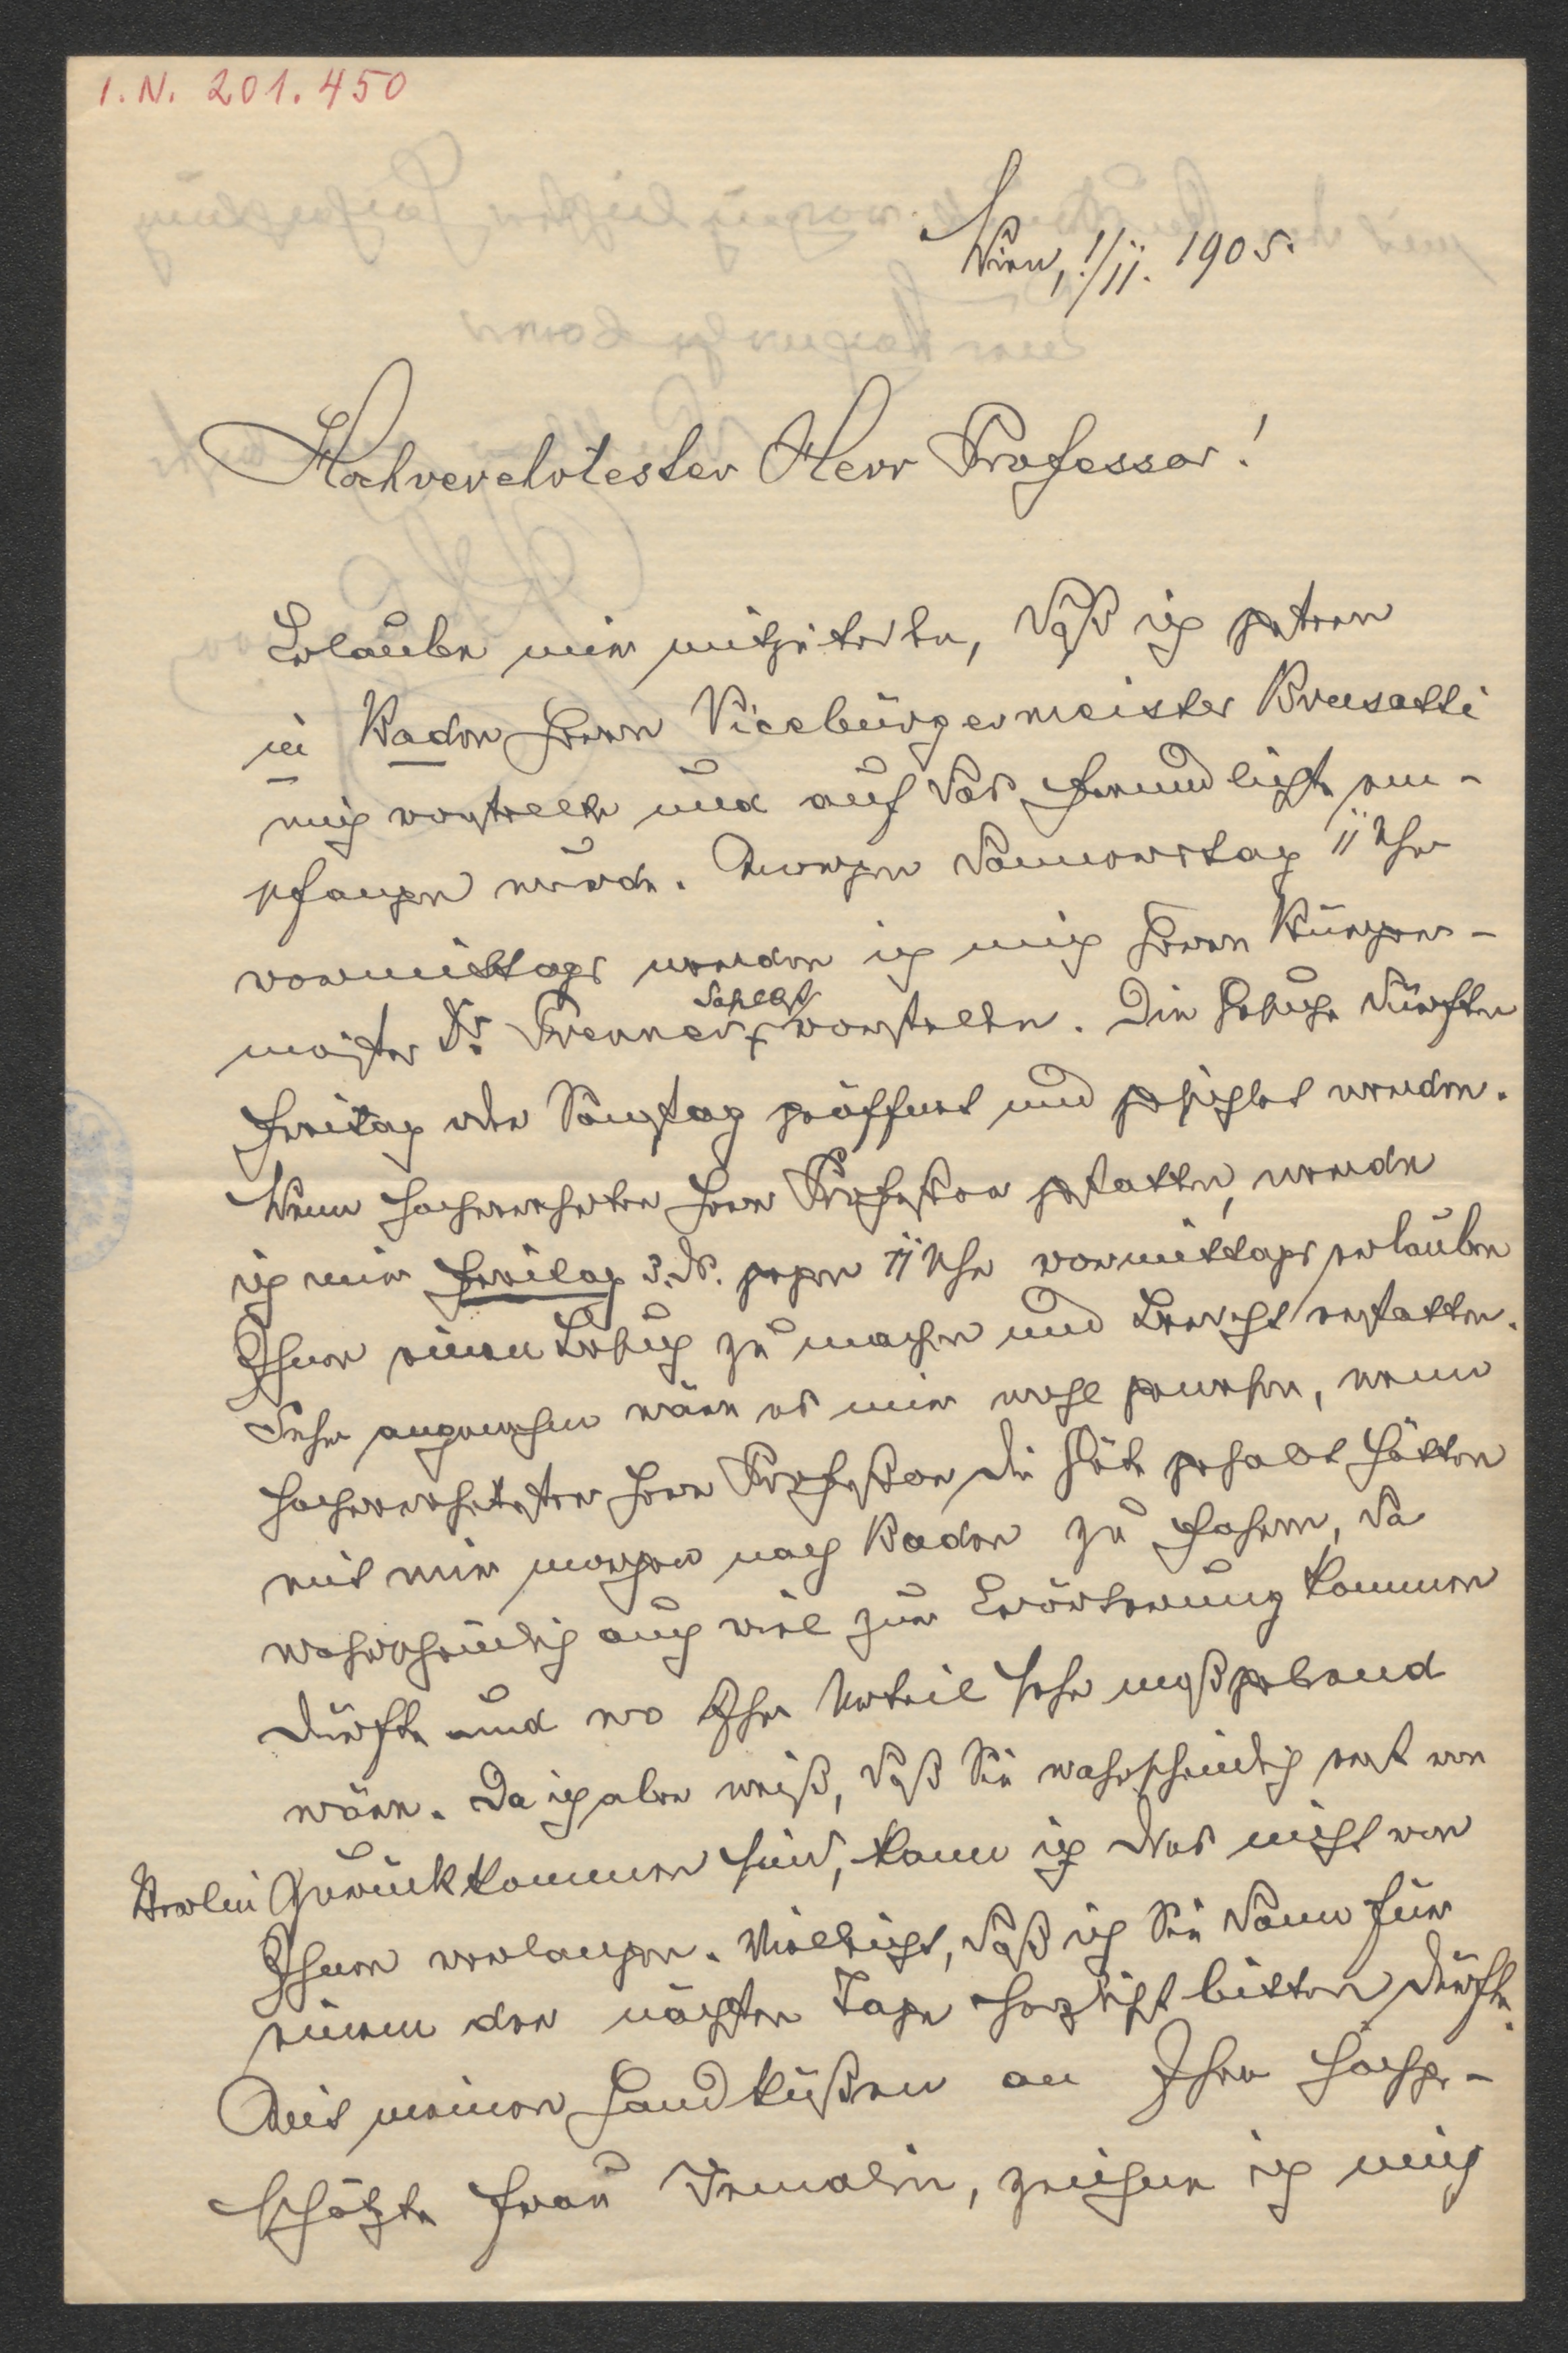 I. N. 201.450
Wien, 1/II. 1905.
Hochverehrtester Herr Professor!
Erlaube mir mitzuteilen, daß ich gestern
in Baden Herrn Vicebürgermeister Brusatti
mich vorstellte und auf das freundlichste em-
pfangen wurde. Morgen Donnerstag 11 Uhr
vormittags werde ich mich Herrn Bürger-
meister Dr. Trenner daselbst vorstellen. Die Gesuche dürften
Freitag oder Samstag geöffnet und gesichtet werden.
Wenn hochverehrter Herr Professor gestatten, werde
ich mir Freitag 3. ds. gegen 11 Uhr vormittags erlauben
Ihnen einen Besuch zu machen und Bericht erstatten.
Sehr angenehm wäre es mir wohl gewesen, wenn
hochverehrtester Herr Professor die Güte gehabt hätten
mit mir morgen nach Baden zu fahren, da
wahrscheinlich auch viel zur Erörterung kommen
dürfte und wo Ihr Urteil sehr maßgebend
wäre. Da ich aber weiß, daß Sie wahrscheinlich erst von
Berlin zurückkommen sind, kann ich das nicht von
Ihnen verlangen. Vielleicht, daß ich Sie dann für
einen der nächsten Tage herzlichst bitten dürfte.
Mit meinen Handküßen an Ihre hochge-
schätzte Frau Gemalin, zeichne ich mich